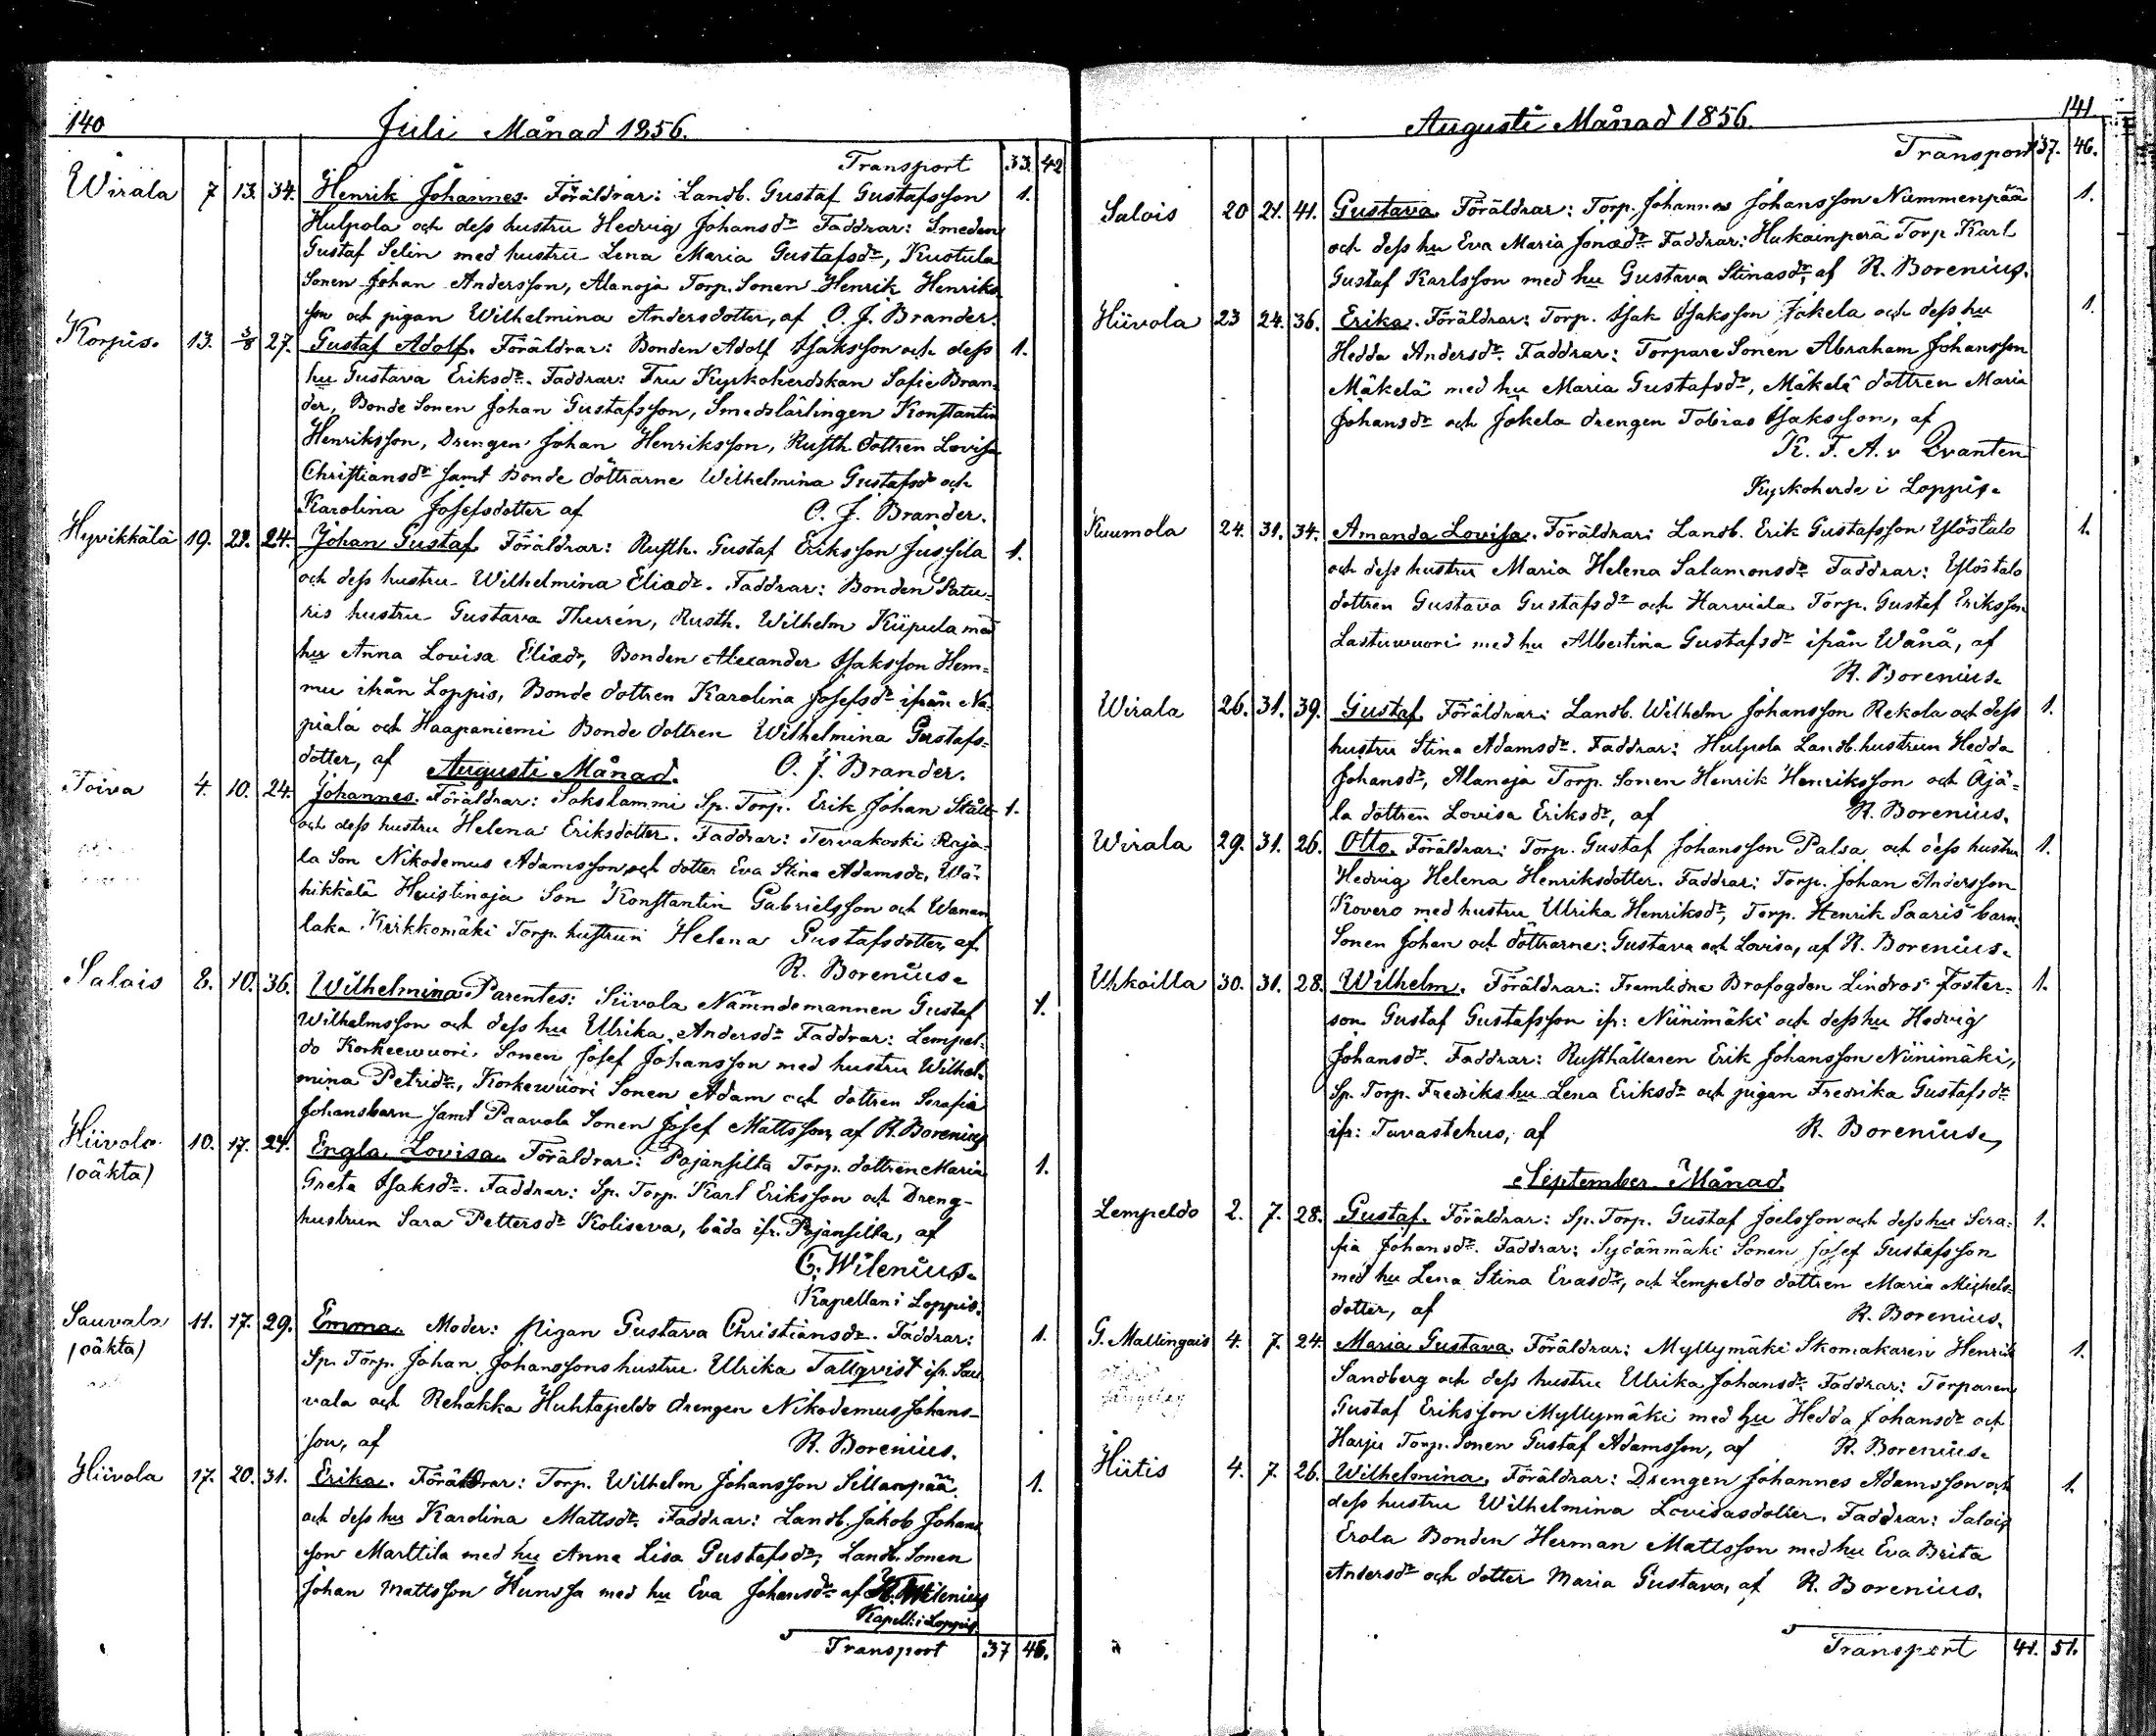 140
Juli Månad 1856.
Transport 33. 42
Wirala 7 13. 34. Henrik Johannes. Föräldrar: Landb. Gustaf Gustafsson 1.
Hulpola och dess hustru Hedvig Johansdr Faddrar: Smeden
Gustaf Selin med hustru Lena Maria Gustafsdr, Kustula
Sonen Johan Andersson, Alanoja Torp. Sonen Henrik Henriks-
son och pigan Wilhelmina Andersdotter, af O. J. Brander.
Korpis. 13. 3/8 27. Gustaf Adolf. Föräldrar: Bonden Adolf Isaksson och dess 1.
hu Gustava Eriksdr. Faddrar: Fru Kyrkoherdskan Sofie Bran-
der, Bonde Sonen Johan Gustafsson, Smedslärlingen Konstantin
Henriksson, Drengen Johan Henriksson, Rusth. dottren Lovisa
Christiansdr samt Bonde döttrarne Wilhelmina Gustafsdr och
Karolina Josefsdotter af O. J. Brander.
Hyvikkälä 19. 22. 24. Johan Gustaf. Föräldrar: Rusth. Gustaf Eriksson Jussila 1.
och dess hustru Wilhelmina Eliædr. Faddrar: Bonden Patu-
ris hustru Gustava Thurén, Rusth. Wilhelm Kiipula med
hu Anna Lovisa Eliædr, Bonden Alexander Isaksson Hem-
mu ifrån Loppis, Bonde dottren Karolina Josefsdr ifrån Na-
piala och Haapaniemi Bonde dottren Wilhelmina Gustafs-
dotter, af O. J. Brander.
Augusti Månad.
Toiva 4. 10. 24. Johannes. Föräldrar: Sakslammi Sp. Torp. Erik Johan Ståll 1.
och dess hustru Helena Eriksdotter. Faddrar: Tervakoski Raja-
la Son Nikodemus Adamsson och dotter Eva Stina Adamsdr, Wä-
hikkälä Huistinoja Son Konstantin Gabrielsson och Wanan
taka Kirkkomäki Torp. hustrun Helena Gustafsdotter, af
R. Borenius.
Salais 8. 10. 36. Wilhelmina. Parentes: Siivola Nämndemannen Gustaf 1.
Wilhelmsson och dess hu Ulrika Andersdr Faddrar: Lempel-
do Korkeewuori Sonen Josef Johansson med hustru Wilhel-
mina Petridr, Korkewuori Sonen Adam och dottren Serafia
Johansbarn samt Paavola Sonen Josef Mattsson, af R. Borenius
Hiivola 10. 17. 24. Engla Lovisa. Föräldrar: Pajansilta Torp. dottren Maria 1.
(oäkta) Greta Isaksdr. Faddrar: Sp. Torp. Karl Eriksson och Dreng-
hustrun Sara Pettersdr Koliseva, båda ifr. Pajansilta, af
C. Wilenius.
Kapellan i Loppis.
Sauvala 11. 17. 29. Emma. Moder: Pigan Gustava Christiansdr. Faddrar: 1.
(oäkta) Sp. Torp. Johan Johanssons hustru Ulrika Tallqvist ifr. Sau-
vala och Rehakka Huhtapeldo drengen Nikodemus Johans-
son, af R. Borenius.
Hiivola 17. 20. 31. Erika. Föräldrar: Torp. Wilhelm Johansson Sillanpää 1.
och dess hu Karolina Mattsdr. Faddrar: Landb. Jakob Johans-
son Marttila med hu Anna Lisa Gustafsdr, Landb. Sonen
Johan Mattsson Hunssa med hu Eva Johansdr af Wilenius
Kapell: i Loppis.
Transport 37 46.
141.
Augusti Månad 1856.
Transport 37. 46.
Salois 20 21. 41. Gustava. Föräldrar: Torp. Johannes Johansson Nummenpää 1.
och dess hu Eva Maria Jonædr. Faddrar: Hukainperä Torp Karl
Gustaf Karlsson med hu Gustava Stinasdr, af R. Borenius.
Hiivola 23 24. 36. Erika. Föräldrar: Torp. Isak Isaksson Jokela och dess hu 1.
Hedda Andersdr. Faddrar: Torpare Sonen Abraham Johansson
Mäkelä med hu Maria Gustafsdr, Mäkelä dottren Maria
Johansdr och Jokela drengen Tobias Isaksson, af
K. F. A. v Qvanten
Kyrkoherde i Loppis.
Kuumola 24. 31. 34. Amanda Lovisa. Föräldrar: Landb. Erik Gustafsson Ylöstalo 1.
och dess hustru Maria Helena Salamonsdr Faddrar: Ylöstalo
dottren Gustava Gustafsdr och Harviala Torp. Gustaf Eriksson
Lastuwuori med hu Albertina Gustafsdr ifrån Wånå, af
R. Borenius.
Wirala 26. 31. 39. Gustaf. Föräldrar: Landb. Wilhelm Johansson Rekola och dess 1.
hustru Stina Adamsdr. Faddrar: Hulpola Landb. hustrun Hedda
Johansdr, Alanoja Torp. Sonen Henrik Henriksson och Äjä-
lä dottren Lovisa Eriksdr, af R. Borenius.
Wirala 29. 31. 26. Otto. Föräldrar: Torp. Gustaf Johansson Palsa och dess hustru 1.
Hedvig Helena Henriksdotter. Faddrar: Torp. Johan Andersson
Kovero med hustru Ulrika Henriksdr, Torp. Henrik Saaris barn:
Sonen Johan och döttrarne: Gustava och Lovisa, af R. Borenius.
Uhkoilla 30. 31. 28. Wilhelm. Föräldrar: Fremlidne Brofogden Lindros' foster- 1.
son Gustaf Gustafsson ifr: Niinimäki och dess hu Hedvig
Johansdr. Faddrar: Rusthållaren Erik Johansson Niinimäki,
Sp. Torp. Fredriks hu Lena Eriksdr och pigan Fredrika Gustafsdr
ifr: Tavastehus, af R. Borenius.
September Månad.
Lempeldo 2. 7. 28. Gustaf. Föräldrar: Sp. Torp. Gustaf Joelsson och dess hu Sera- 1.
fia Johansdr. Faddrar: Sydänmäki Sonen Josef Gustafsson
med hu Lena Stina Evasdr, och Lempeldo dottren Maria Michels-
dotter, af R. Borenius.
G. Mallingais 4. 7. 24. Maria Gustava. Föräldrar: Myllymäki Skomakaren Henrik 1.
Sandberg och dess hustru Ulrika Johansdr. Faddrar: Torparen
Gustaf Eriksson Myllymäki med hu Hedda Johansdr och
Harju Torp. Sonen Gustaf Adamsson, af R. Borenius.
Hiitis 4. 7. 26. Wilhelmina. Föräldrar: Drengen Johannes Adamsson och 1.
dess hustru Wilhelmina Lovisasdotter. Faddrar: Salois
Erola Bonden Herman Mattsson med hu Eva Brita
Andersdr och dotter Maria Gustava, af R. Borenius.
Transport 41. 51.